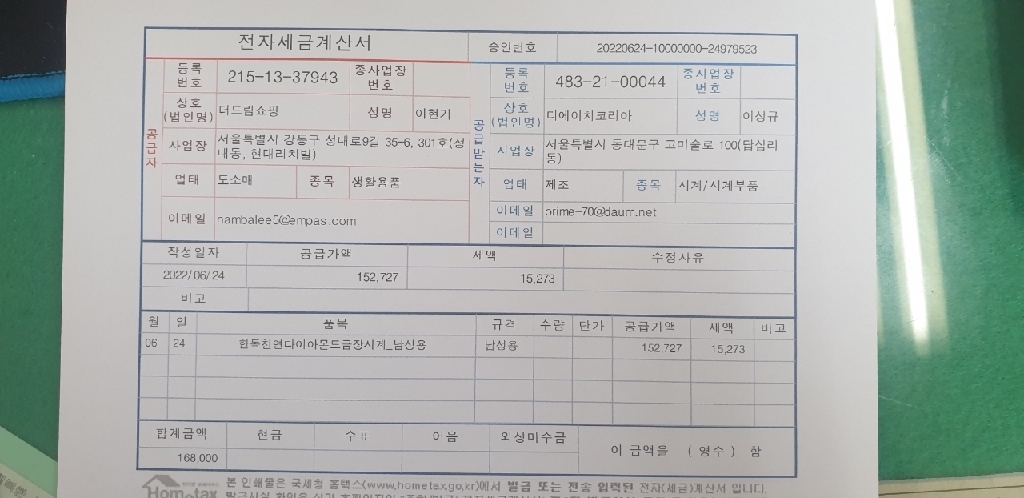 전자세금계산서
승인번호 20220624-10000000-24979523
공급자
등록번호 215-13-37943 종사업장번호
상호(법인명) 더드림쇼핑 성명 이현기
사업장 서울특별시 강동구 성내로9길 35-6, 301호(성내동, 현대리치빌)
업태 도소매 종목 생활용품
이메일 nambalee5@empas.com
공급받는자
등록번호 483-21-00044 종사업장번호
상호(법인명) 디에이치코리아 성명 이상규
사업장 서울특별시 동대문구 고미술로 100(답십리동)
업태 제조 종목 시계/시계부품
이메일 prime-70@daum.net
이메일
작성일자 공급가액 세액 수정사유
2022/06/24 152,727 15,273
비고
월 일 품목 규격 수량 단가 공급가액 세액 비고
06 24 남성용 152,727 15,273
합계금액 현금 수표 어음 외상미수금 이 금액을 ( 영수 ) 함
168,000
Hometax 본 인쇄물은 국세청 홈택스(www.hometax.go.kr)에서 발급 또는 전송 입력된 전자(세금)계산서 입니다.